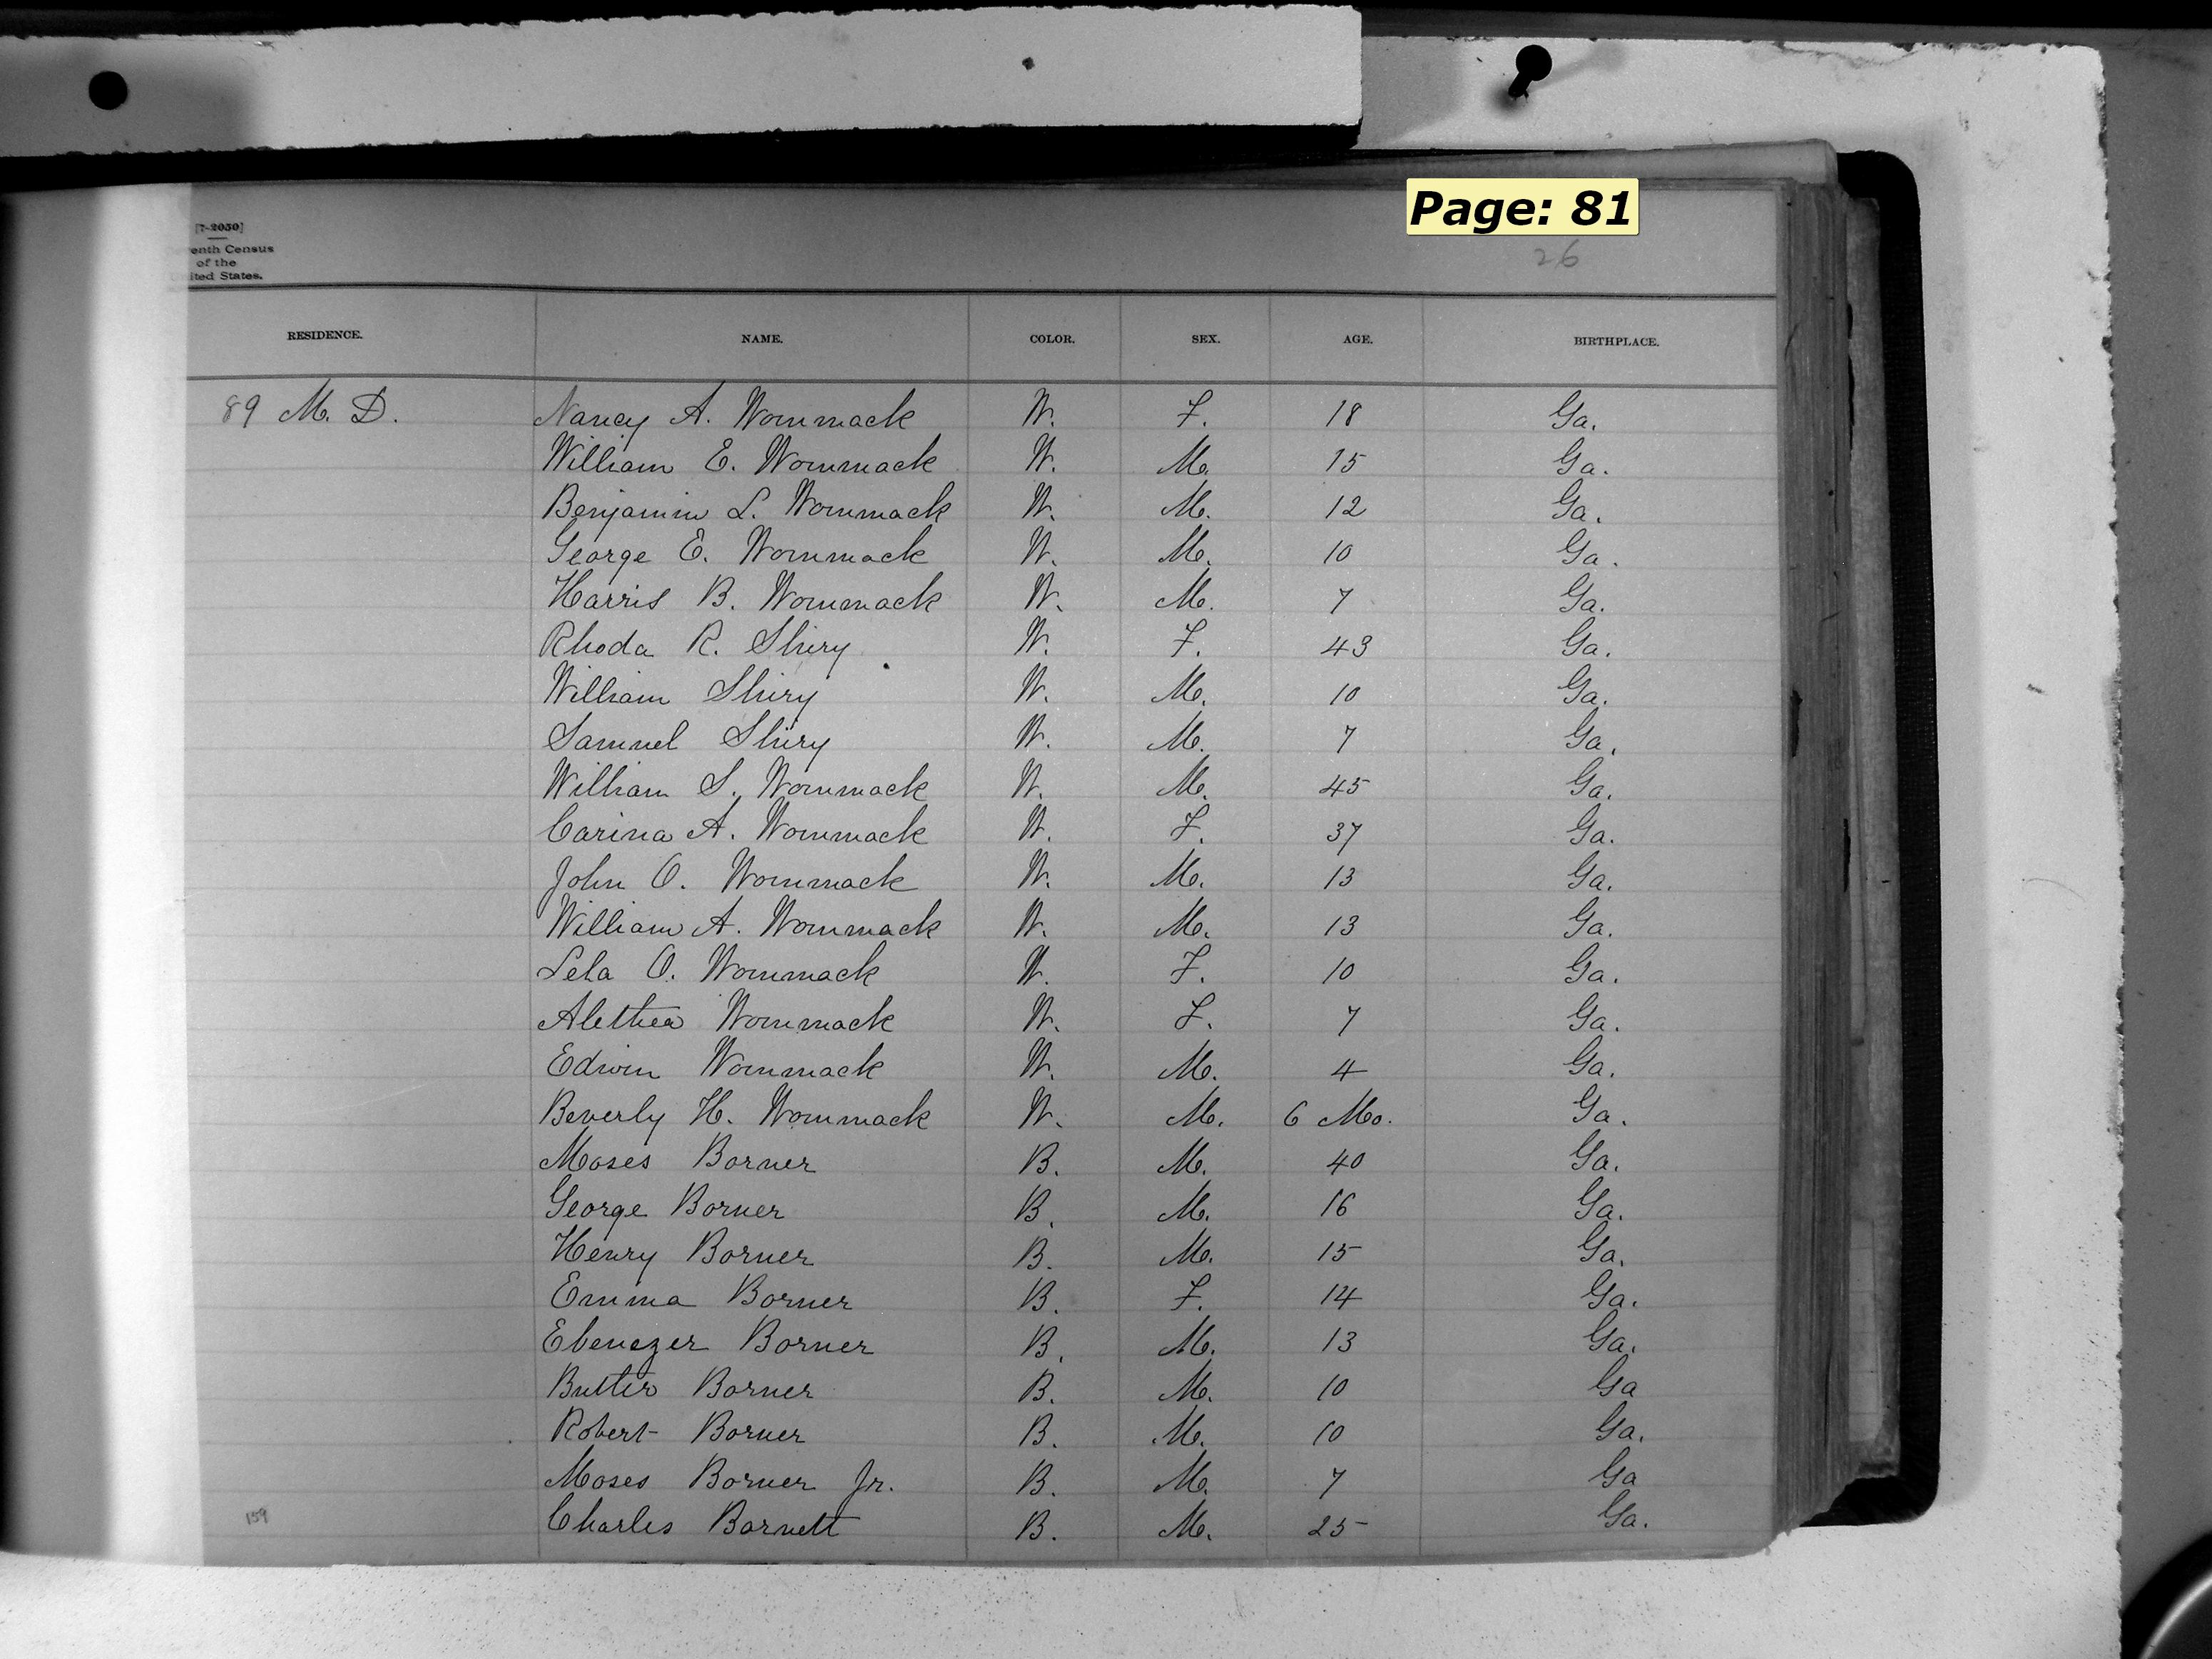 Page: 81
[7-2050]
enth Census
of the
ited States.
26
RESIDENCE. NAME. COLOR. SEX. AGE. BIRTHPLACE.
89 M. D. Nancy A. Wommack W. F. 18 Ga.
William E. Wommack W. M. 15 Ga.
Benjamin L. Wommack W. M. 12 Ga.
George E. Wommack W. M. 10 Ga.
Harris B. Wommack W. M. 7 Ga.
Rhoda R. Shiry W. F. 43 Ga.
William Shiry W. M. 10 Ga.
Samuel Shiry W. M. 7 Ga.
William S. Wommack W. M. 45 Ga.
Carina A. Wommack W. F. 37 Ga.
John O. Wommack W. M. 13 Ga.
William A. Wommack W. M. 13 Ga.
Lela O. Wommack W. F. 10 Ga.
Alethea Wommack W. F. 7 Ga.
Edwin Wommack W. M. 4 Ga.
Beverly H. Wommack W. M. 6 Mo. Ga.
Moses Borner B. M. 40 Ga.
George Borner B. M. 16 Ga.
Henry Borner B. M. 15 Ga.
Emma Borner B. F. 14 Ga.
Ebenezer Borner B. M. 13 Ga.
Butler Borner B. M. 10 Ga
Robert Borner B. M. 10 Ga.
Moses Borner Jr. B. M. 7 Ga
159 Charles Barnett B. M. 25 Ga.